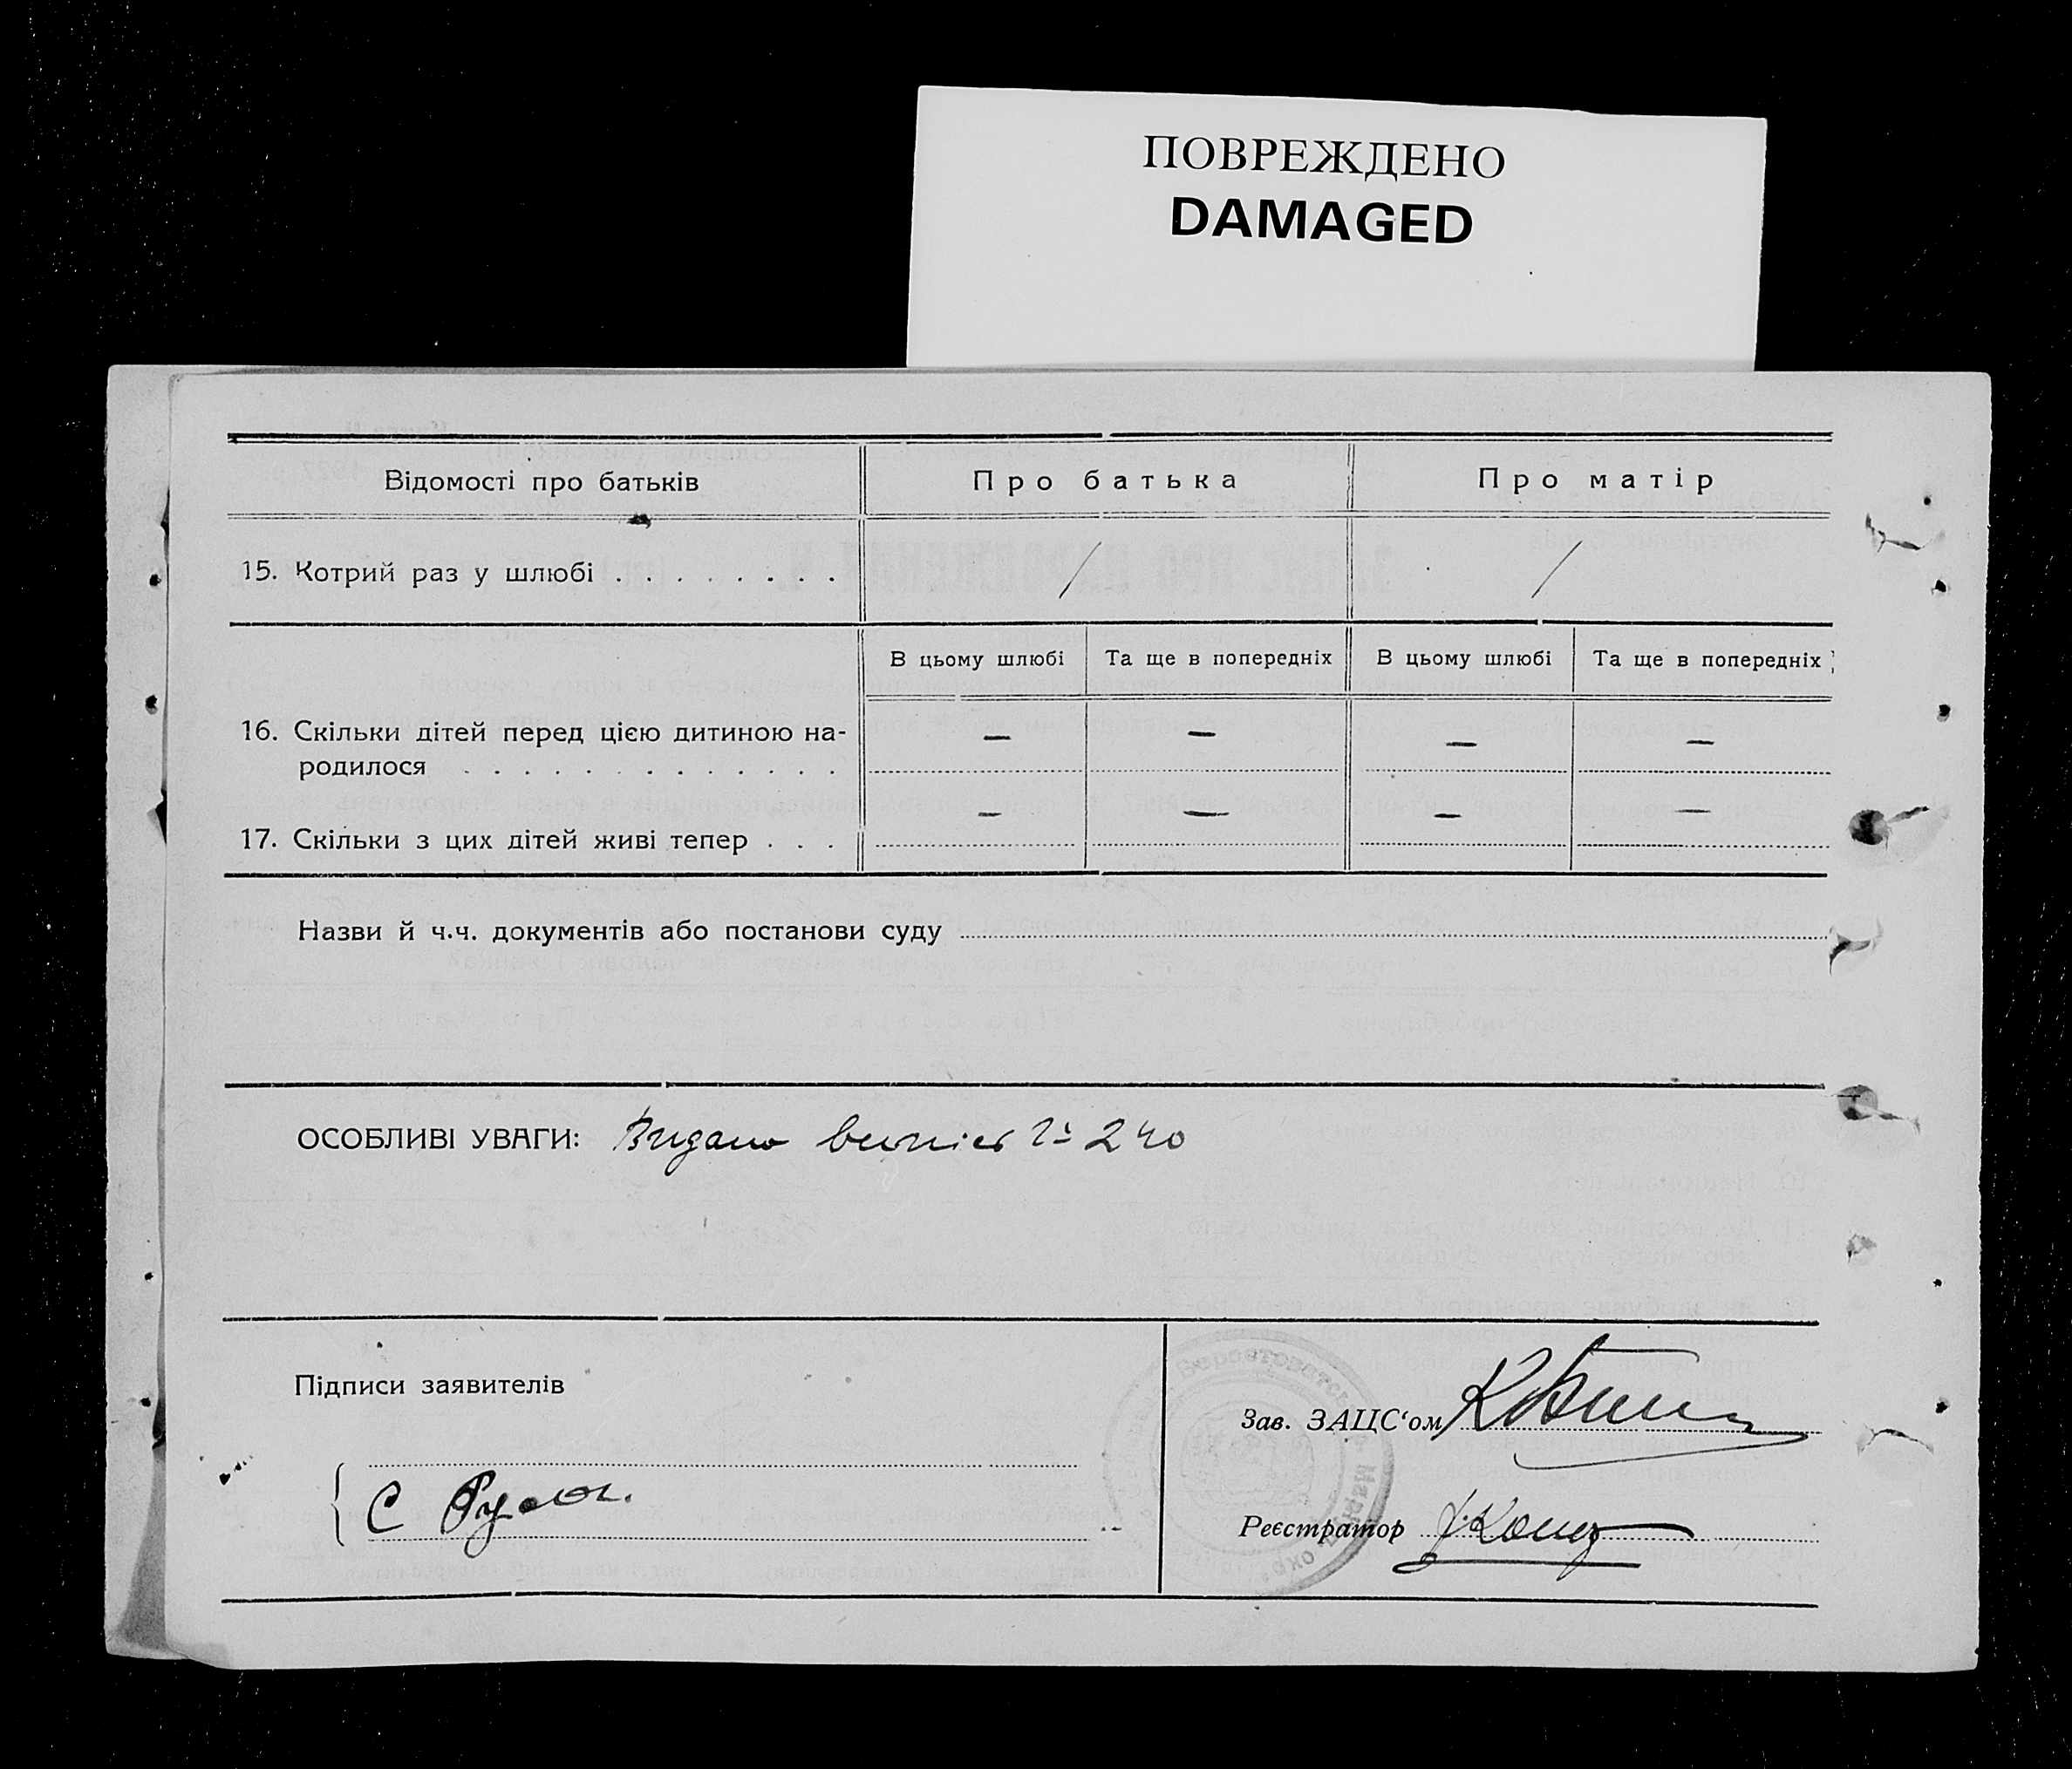 ПОВРЕЖДЕНО
DAMAGED
Відомості про батьків
Про батька
Про матір
15. Котрий раз у шлюбі . . . . . . . .
/
/
В цьому шлюбі
Та ще в попередніх
В цьому шлюбі
Та ще в попередніх
16. Скільки дітей перед цією дитиною на-
родилося . . . . . . . . . . . . .
— — — —
17. Скільки з цих дітей живі тепер . . .
— — — —
Назви й ч.ч. документів або постанови суду
ОСОБЛИВІ УВАГИ: Видано 240
Підписи заявителів
Зав. ЗАЦС‘ом
С
Реєстратор